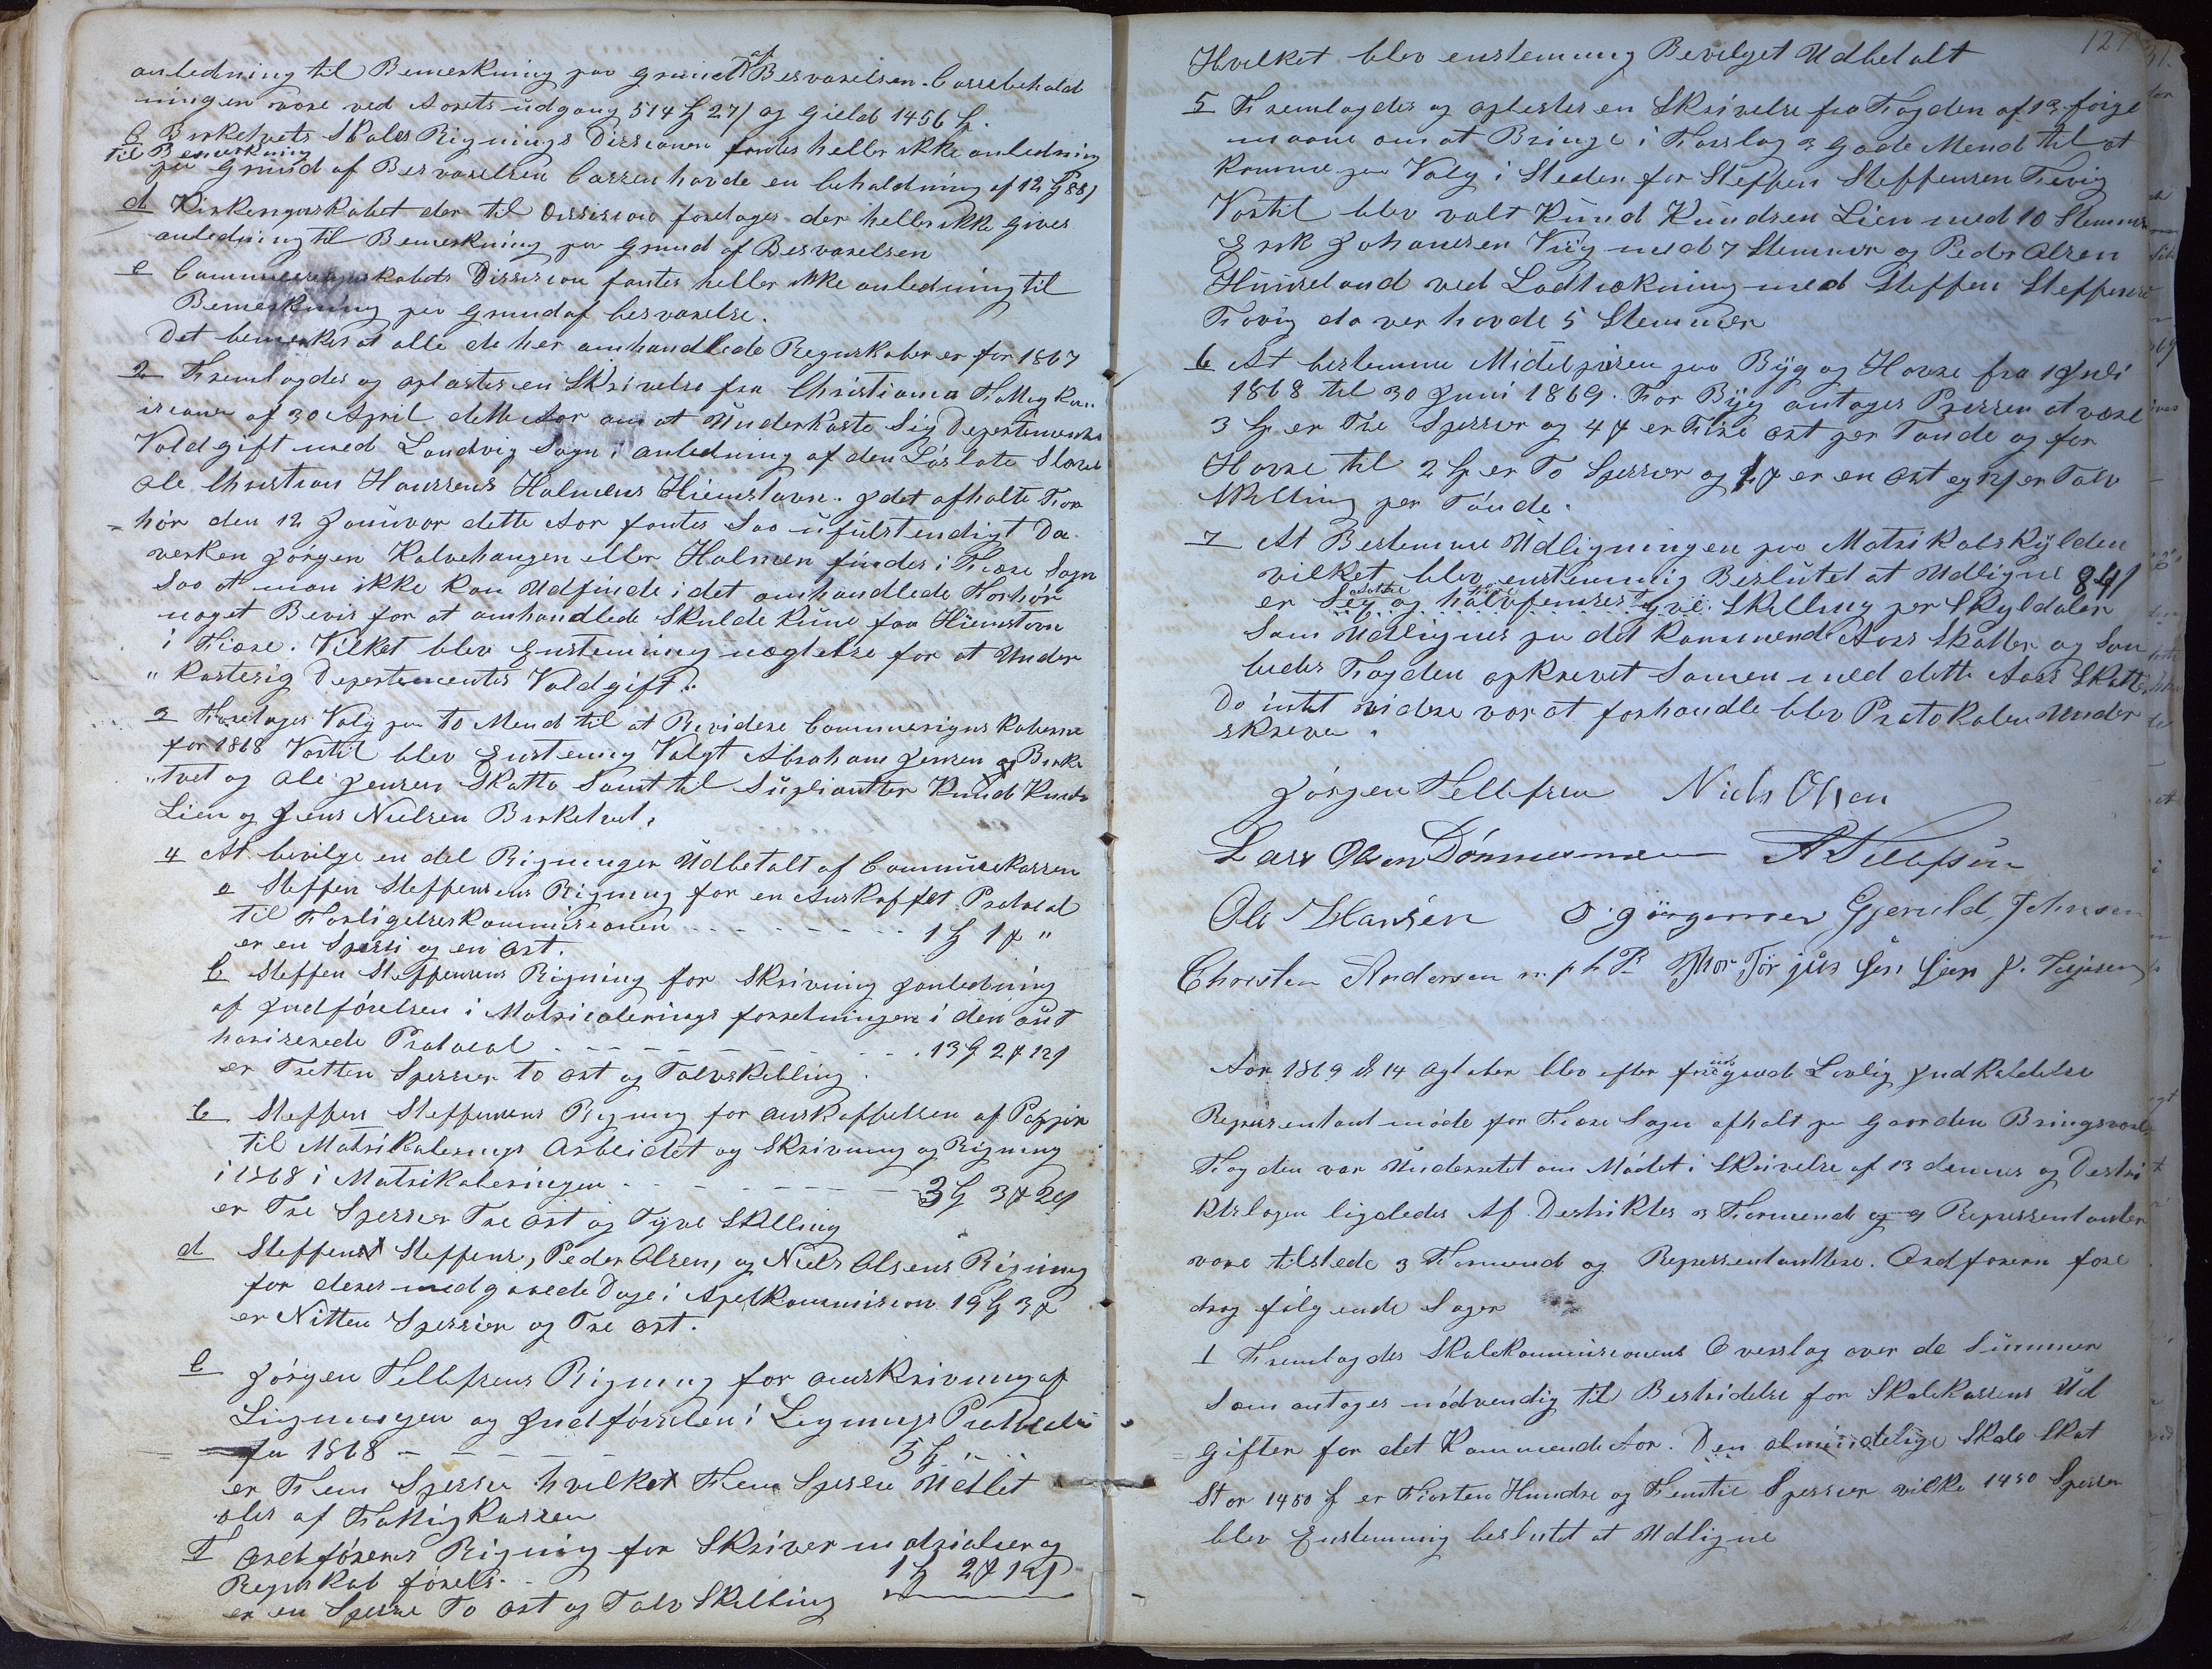 anledning til Bemerkning paa Grund af Besvarelsen. Cassebehold
ningen vare ved Aarets udgang 514 27 og Gield 1456
c Birketvets Skoles Rignings Dissionen fantes heller ikke anledning
til Bemerkning
paa Grund af Besvarelsen Cassen havde en beholdning af 12 88
d Kirkergnskabet der til Dission foretages der heller ikke gives
anledning til Bemerkning paa Grund af Besvarelsen
e Communeregnskabets Dission fantes heller ikke anledning til
Bemerkning paa Grund af besvarelse.
Det bemerkes at alle de her omhandlede Regnskaber er for 1867
2 Fremlagdes og oplæstes en Skrivelse fra Christiania Fattig kom
isionen af 30 April dette Aar om at Underkaste Sig Departementes
Voldgift med Landvig Sogn i anledning af den Løslate Slave
Ole Christian Hanssens Holmens Hiemstavn. Idet afholte For
hør den 12 Januvar dette Aar fantes Saa ufulstendigt Da
verken Jørgen Kalvehaugen eller Holmen findes i Fiære Sogn
Saa at man ikke kan Udfinde i det omhandlede Forhør
noget Bevis for at omhandlede Skulde kune faa Hiemstavn
i Fiære. Vilket blev Enstemmig nægtelse for at Under
kastesig Departementes Voldgift.
3 Foretages Valg paa to Mend til at Revidere Communerignskaberne
for 1868 Vortil blev Enstemig Valgt Abraham Jensen Birke
tvet og Ole Jensen Skatto Samt til Suplianter Knud Knuds
Lien og Jens Nielsen Birketvet.
4 At bevilge en del Rigninger Udbetalt af Communekassen
a Steffen Steffensens Rigning for en Anskaffet Protocol
til Forligelseskommisionen 1 1 "
er en Spessi og en Ort.
b Steffen Steffensens Rigning for Skrivning Janledning
af Jndførelsen i Matriculerings forretningen i den aut
horiserede Protocol 13 2 12
er Tretten Spessier to ort og Tolvskilling.
c Steffen Steffensens Rigning for anskaffelsen af Pappir
til Matrikulerings Arbeidet og Skrivning og Rigning
i 1868 i Matrikuleringen 3 3 20
er Tre Spessier Tre ort og Tyve Skilling
d Steffen Steffens, Peder Olsen, og Niels Olsens Rigning
for deres medgaaede Dage i Apelkommision 19 3
er Nitten Spessier og Tre ort.
e Jørgen Tellefsens Rigning for anskrivning af
Ligningen og Jndførselen i Lignings Protocolen
for 1868 5
er Fem Spessier hvilket Fem Spessie Udbet
ales af Fattigkassen
f Ordførerens Rigning for Skrivermatrialier og
Regnskab førels. 1 2 12
er en Spessie To ort og Tolv Skilling
127
Hvilket blev enstemmig Bevilget Udbetalt
5 Fremlagdes og oplestes en Skrivelse fra Fogden af 19 forige
maane om at Bringe i Forslag 3 Gode Mend til at
komme paa Valg i Steden for Steffen Steffensen Fevig
Vortil blev valt Knud Knudsen Lien med 10 Stemmer
Erik Johansen Viig med 7 Stemmer og Peder Olsen
Hunseland ved Lodtrækning med Steffen Steffensen
Fævig da ver havde 5 Stemmer
6 At bestemme Midelprisen paa Byg og Havre fra 1 Juli
1868 til 30 Juni 1869. For Byg antages Pressen at være
3 er Tre Spessier og 4 er Fire ort per Tønde og for
Havre til 2 er To Spessier og 1 er en Ort og 12 er Tolv
Skilling per Tønde.
7 At Bestemme Udligningen paa Matrikulskylden
vilket blev enstemmig Beslutet at Udligne 84
er Skilling per Skyldaler
Som Udlignes paa det kommende Aars Skatter og Saa
ledes Fogden opkrevet Samen med dette Aars Skatter
Da intet videre var at forhandle blev Protokolen Under
skreven.
Jørgen Tellefsen Niels Olsen
Lars Olsen Dømmesmoen A Tellefsen
Ole Hansen O Jørgensen Gjeruld Johnsen
Chresten Andersen m. p. h. P. Thor Tørjüs Sen
Aar 1869 d 14 Agtober blev efter gaaende Lovlig Jndkaldelse
Representantmøde for Fiære Sogn afholt paa Gaarden Bringsvær.
Fogden var Underretet om Mødet i Skrivelse af 13 dennes og Destri
ktslægen ligeledes Af Destriktes 3 Formend og 9 Representanter
vare tilstede 3 Formend og Representantere. Ordføren fore
drog følgende Sager
1 Fremlagdes Skolekommisionens Overslag over de Summer
Som antages nødvendig til Bestridelse for Skolekassens Ud
gifter for det Kommende Aar. Den almindelige Skole Skat
Stor 1450 er Fiorten Hundre og Femtie Spessier vilke 1450 Spessier
blev Enstemmig beslutet at Udligne